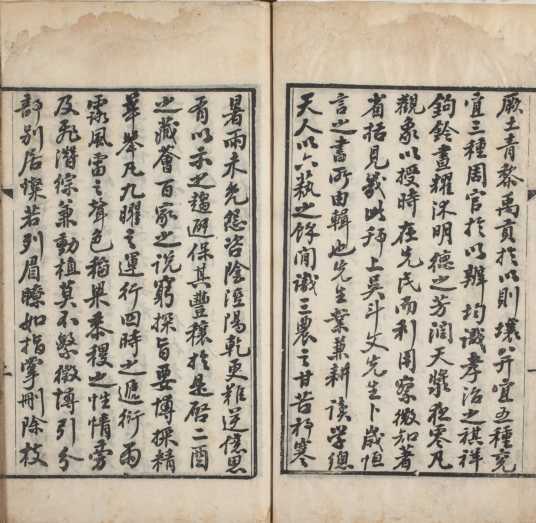 厥土青黎禹貢於以則壤并宜五種兗
宜三種周官於以辨均識孝治之祺祥
鉤鈐晝耀沐明德之芳潤天夜零凡
觀象以授時在先民而利用察微知著
省括見幾此上吳斗文先生卜歲恒
言之書所由輯也先生業兼耕讀学總
天人以六藝之餘閒識三農之甘苦祁寒
暑雨未免怨咨陰淫陽乾更難逆億思
有以示之趨避保其豐穰於是啓二酉
之藏薈百家之説窮探旨要博採精
華舉凡九曜之運行四時之遞衍雨
露風雷之聲色稻粱黍稷之性情旁
及飛潛綜兼動植莫不繁徵博引分
部別居燦若列眉瞭如指掌刪除枝